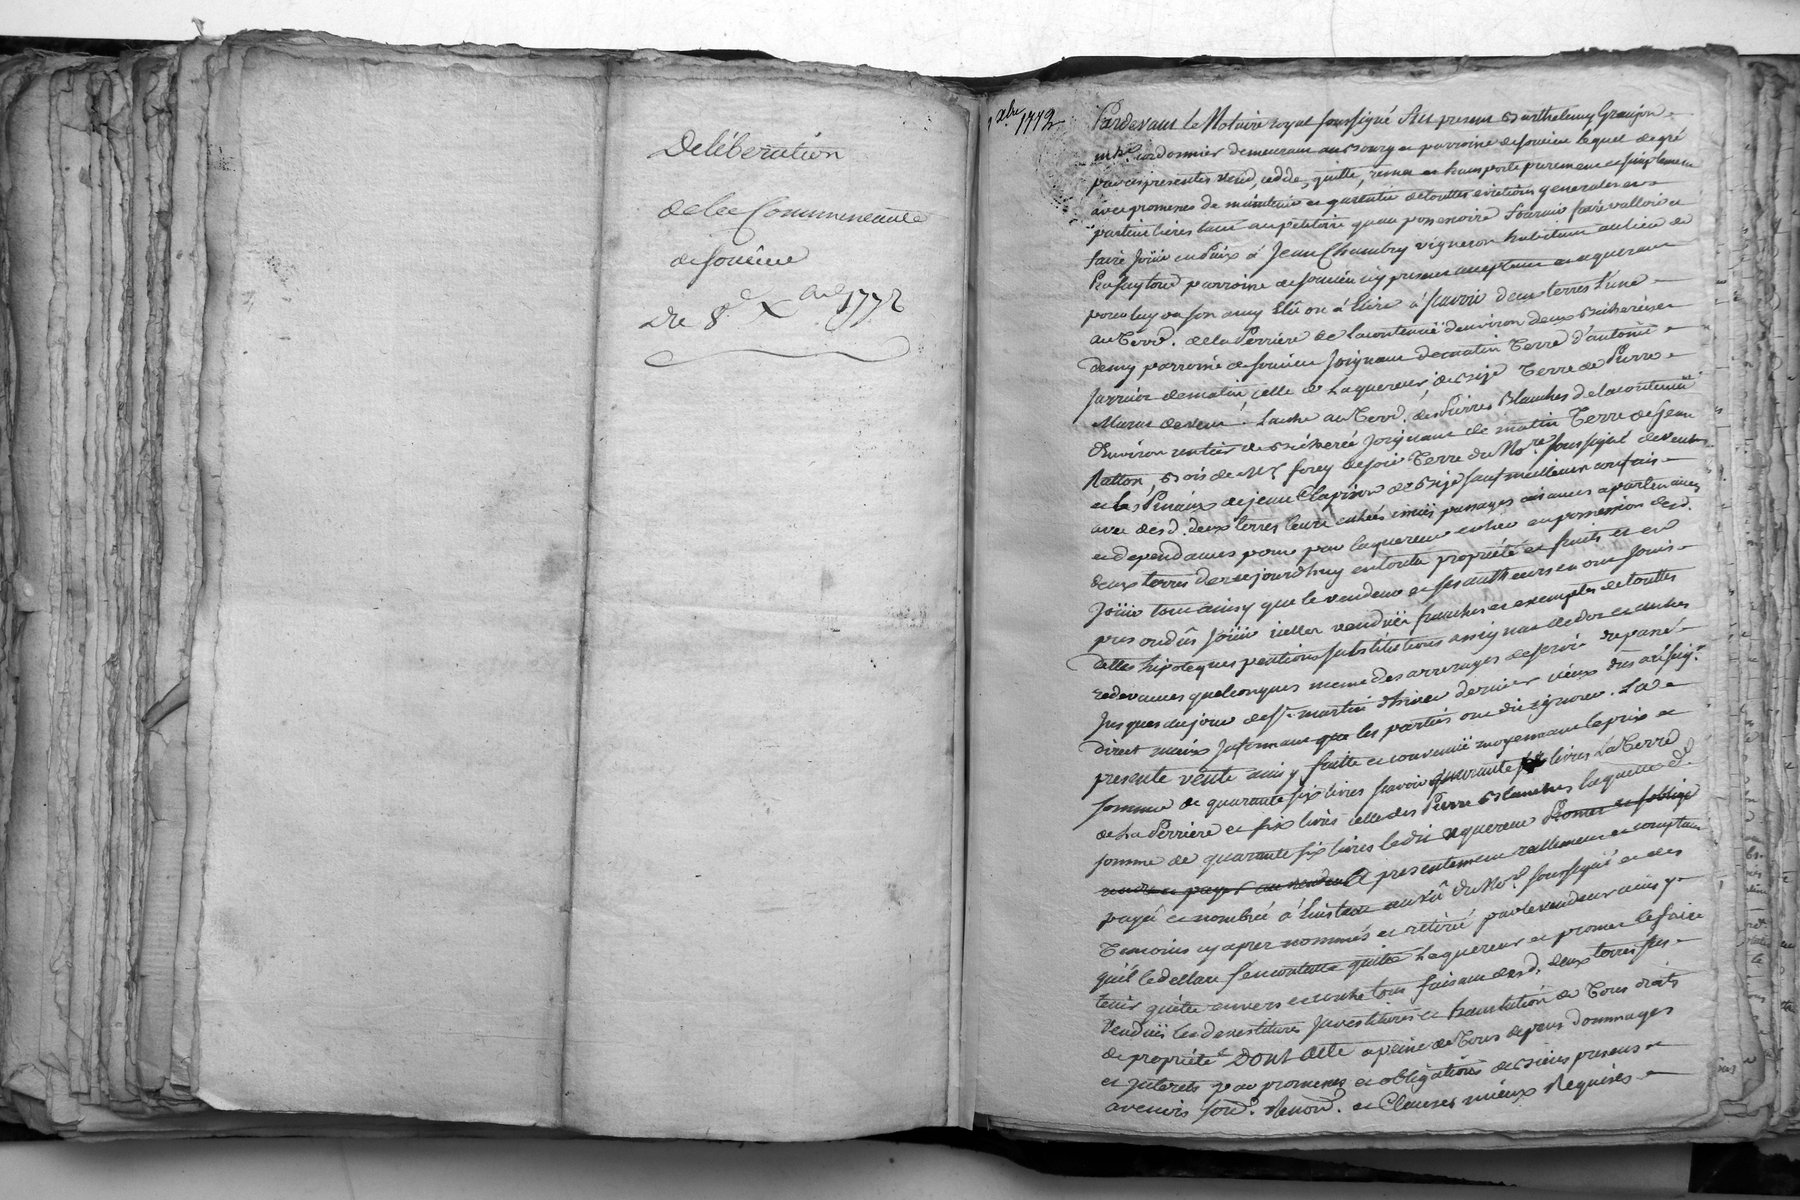 Deliberation
de la Communeauté
de soucieu
Du 8e Xbre 1772
Xbre 1772
Pardevant le Notaire royal soussigné fut present Barthelemy Granjon
mtre. cordonnier demeurant au Bourg et parroisse de soucieu lequel de gré
par ces presentes vend, cedde, quitte, remet et transporte purement et simplement
avec promesse de maintenir et garentir de touttes evictions generales et
particulieres tant au petitoire quau possessoire fournir faire valloir et
faire Joüir en Paix à Jean Chambry vigneron habitant au lieu de
parroisse de soucieu icy present acceptant et aquereur
pour luy ou son amy Elû ou à Elire à scavoir deux terres L'une
au Terre. de la Perriere de la contenüe denviron deux Bicherées et
demy parroisse de soucieu Joignant de matin Terre d'antoine
de matin, celle de Laquereur de bize Terre de Pierre
de vent. Lautre au Terre. des Pierres Blanches de la contenüe
d'Environ un tier de Bicherée Joignant de matin Terre de Jean
Ratton, Bois de Mr forey de soir Terre du Nore. soussigné de vent
et les de jean Clapisson de Bize sauf meilleurs confins
avec desd. deux terres leurs entrées issües passages aisances apartenances
et dependances pour par laquereur entrer en possession desd.
deux terres dez aujourd'huy en toutte propriété et fruits et en
Joüir tout ainsy que le vendeur et ses autheurs en ont Jouis
pres ou dûs Joüir icelles vendües franches et exemptes de touttes
dettes hipoteques pentions substitutions assignat de dot et autres
redevances quelconques meme des arrerages de servis du passé
Jusques au jour de St. martin d'hiver dernier vieux dus au seigr.
direct mieux Informant que les parties ont dit ignorer. La
presente vente ainsy faitte et convenüe moyennant le prix et
somme de quarante six livres scavoir quarante livres La Terre
de La Perriere et six livres celle des Pierre Blanches laquelle de.
somme de quarante six livres ledit aquereur Promet et soblige
payer au vendeur A presentement reellement et comptant
payé et nombré à Linstant au vû du Nore. soussigné et des
Temoins cy apres nommés et retiré par le vendeur ainsy
qu'il le declare sen contente quitte Laquereur et promet le faire
tenir quitte envers et contre tous faisant desd. deux terres sus
vendües les devestitures Investitures et translation de Tous droits
de propriété Dont acte a peine de Tous depens dommages
et Interets par promesses et obligations de Biens presens et
avenirs soud. Renond. et Clauses mieux Requises